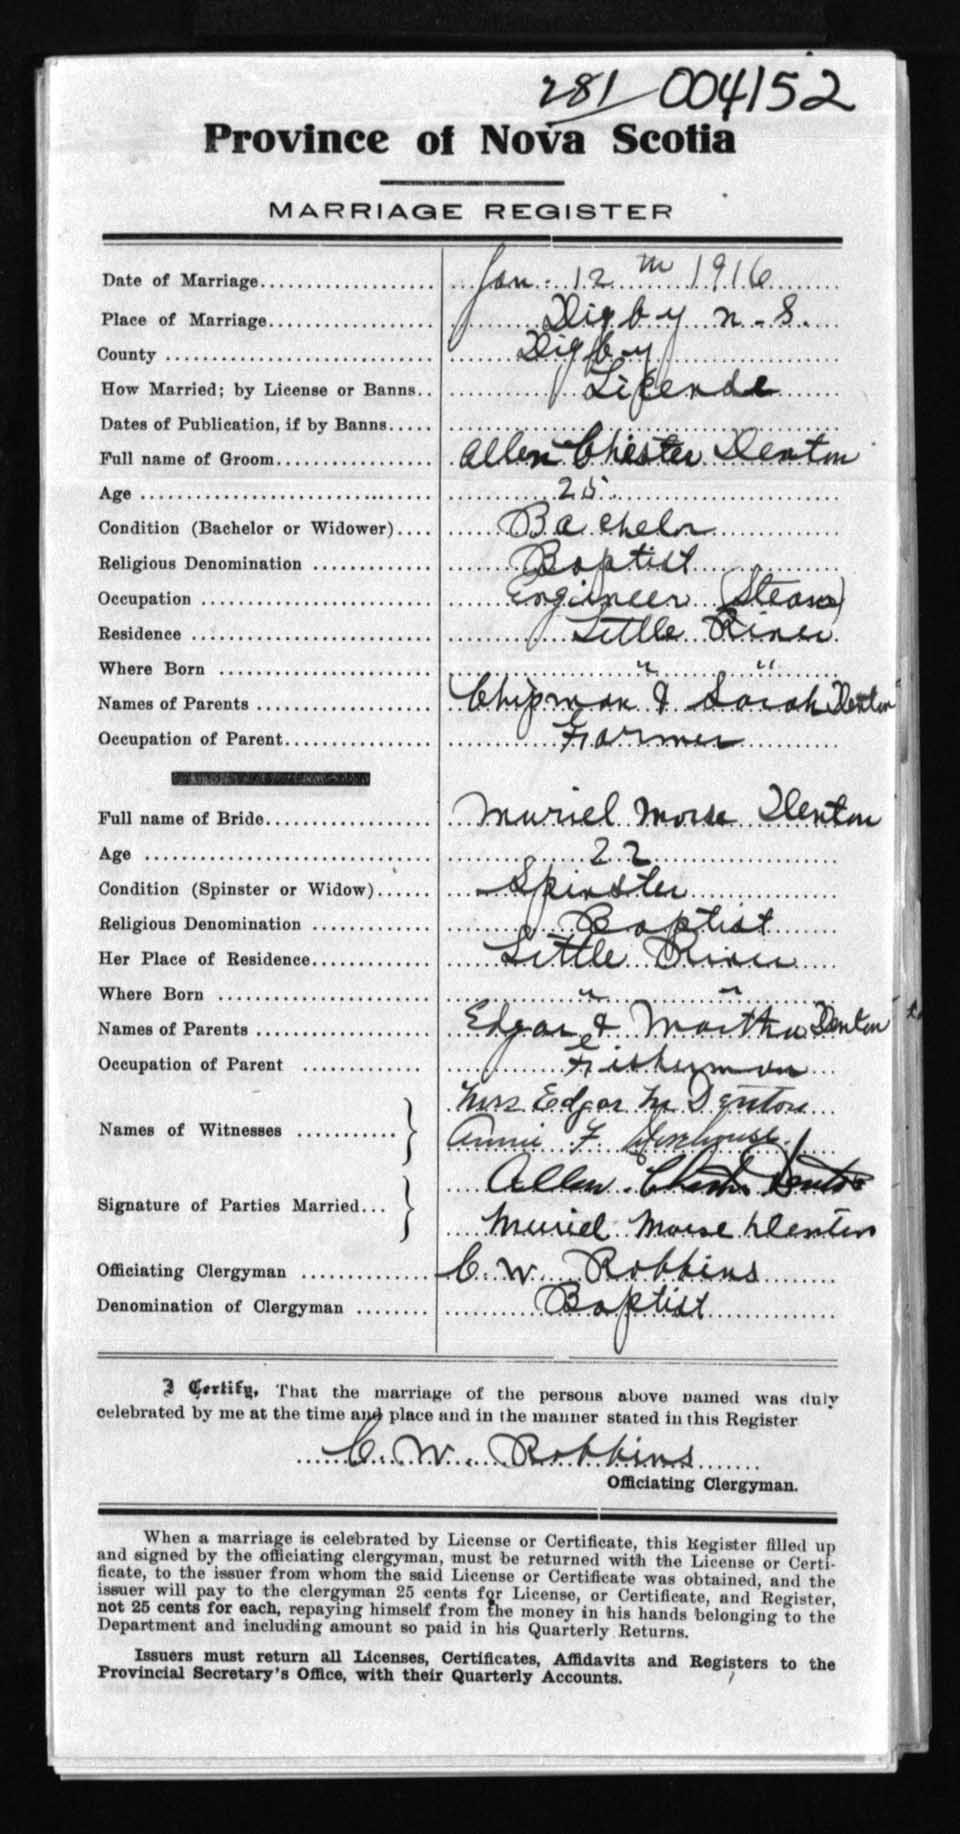 281/004152
Province of Nova Scotia
MARRIAGE REGISTER
Date of Marriage.................... Jan. 12th 1916
Place of Marriage................... Digby N.S.
County ............................. Digby
How Married; by License or Banns.. License
Dates of Publication, if by Banns.....
Full name of Groom.................. Allen Chester Denton
Age ................................ 25
Condition (Bachelor or Widower).... Bachelor
Religious Denomination ............. Baptist
Occupation ......................... Engineer (Steam)
Residence .......................... Little River
Where Born ......................... " "
Names of Parents ................... Chipman & Sarah Denton
Occupation of Parent................ Farmer
Full name of Bride.................. Muriel Morse Denton
Age ................................ 22
Condition (Spinster or Widow)...... Spinster
Religious Denomination ............. Baptist
Her Place of Residence.............. Little River
Where Born ......................... " "
Names of Parents ................... Edgar & Martha Denton
Occupation of Parent ............... Fisherman
Names of Witnesses ........... Mrs Edgar M Denton
Annie F.
Signature of Parties Married... Allen Chester Denton
Muriel Morse Denton
Officiating Clergyman .............. C. W. Robbins
Denomination of Clergyman ........ Baptist
I Certify, That the marriage of the persons above named was duly
celebrated by me at the time and place and in the manner stated in this Register
C. W. Robbins
Officiating Clergyman.
When a marriage is celebrated by License or Certificate, this Register filled up
and signed by the officiating clergyman, must be returned with the License or Certi-
ficate, to the issuer from whom the said License or Certificate was obtained, and the
issuer will pay to the clergyman 25 cents for License, or Certificate, and Register,
not 25 cents for each, repaying himself from the money in his hands belonging to the
Department and including amount so paid in his Quarterly Returns.
Issuers must return all Licenses, Certificates, Affidavits and Registers to the
Provincial Secretary's Office, with their Quarterly Accounts.